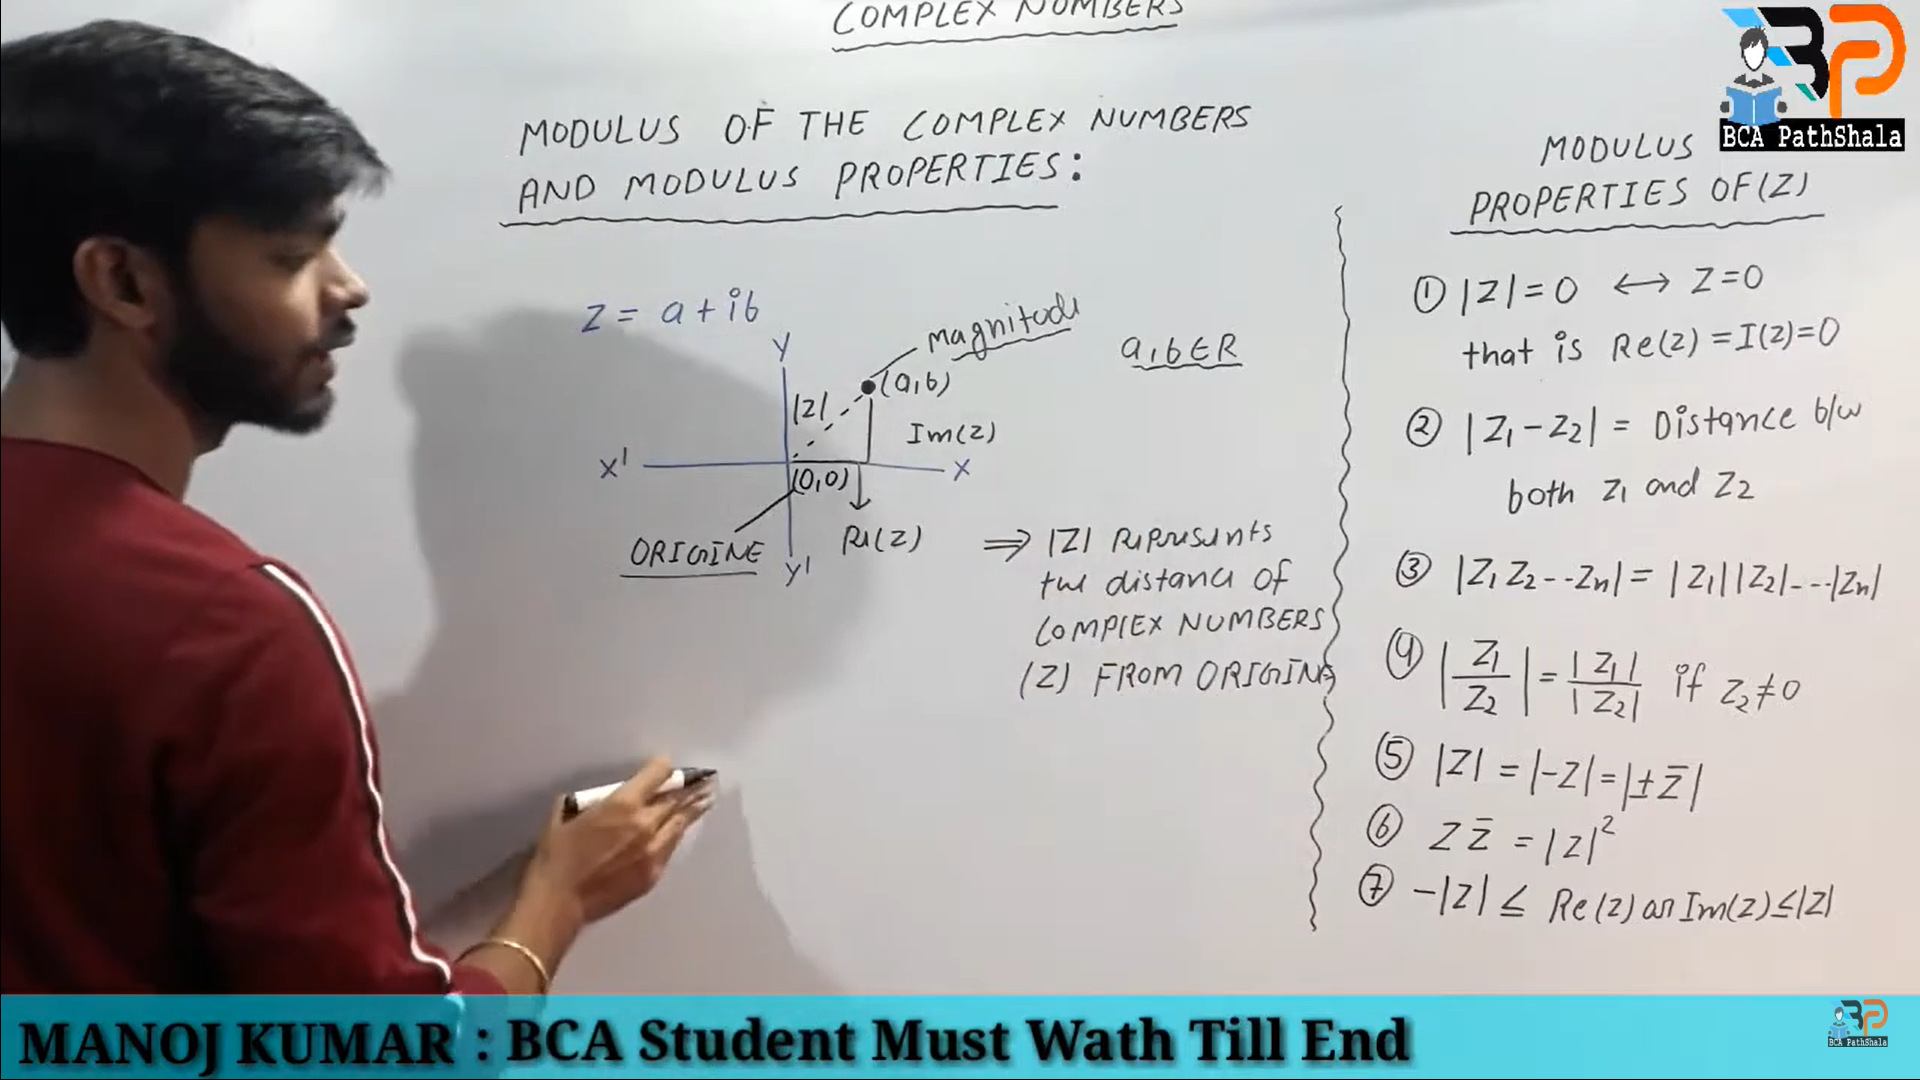 COMPLEX NUMBERS
MODULUS OF THE COMPLEX NUMBERS
AND MODULUS PROPERTIES:
Z = a + ib
Y
magnitude
a,b∈R
|Z|
(a,b)
Im(Z)
X'
X
(0,0)
ORIGINE
Re(Z)
Y'
⇒ |Z| represents
the distance of
COMPLEX NUMBERS
(Z) FROM ORIGINE
BCA PathShala
MODULUS
PROPERTIES OF(Z)
① |Z| = 0 ↔ Z=0
that is Re(z) = I(z)=0
② |Z₁ - Z₂| = Distance b/w
both Z₁ and Z₂
③ |Z₁ Z₂ --- Zn| = |Z₁| |Z₂| --- |Zn|
④ |Z₁/Z₂| = |Z₁|/|Z₂| if Z₂ ≠ 0
⑤ |Z| = |-Z| = |± Z̄|
⑥ Z Z̄ = |Z|²
⑦ -|Z| ≤ Re(z) or Im(z) ≤ |Z|
MANOJ KUMAR : BCA Student Must Wath Till End
BCA PathShala